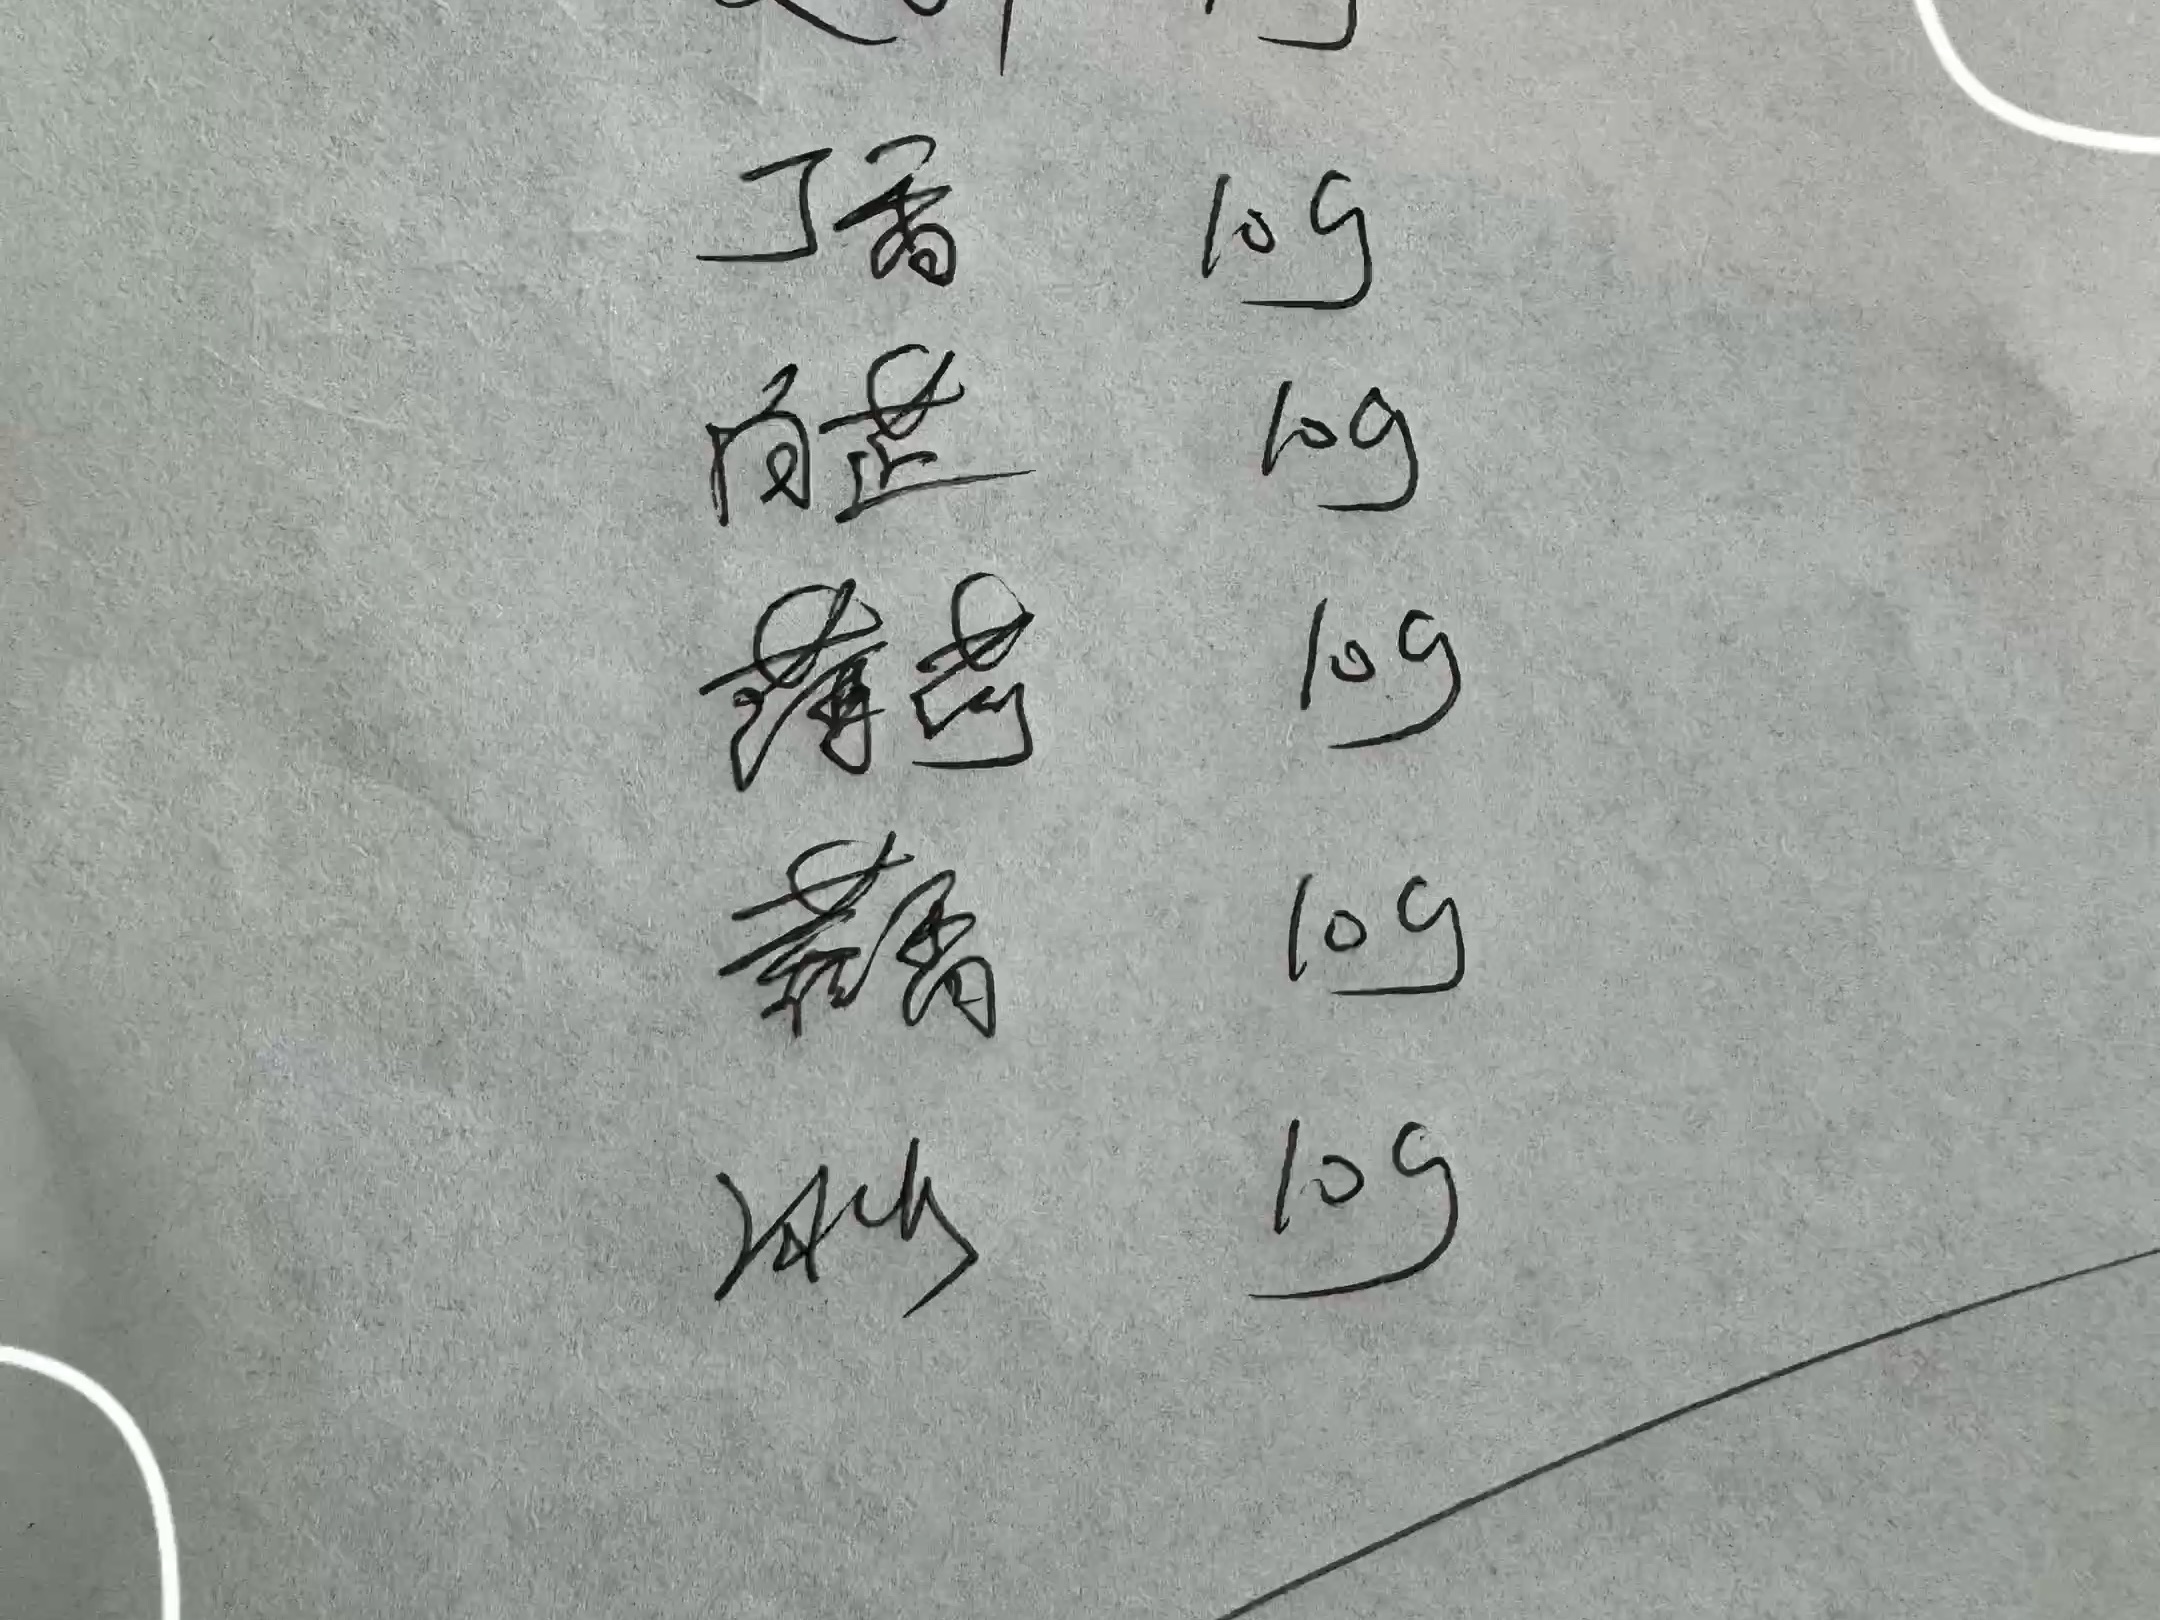 丁香 10g
白芷 10g
薄荷 10g
藿香 10g
冰片 10g